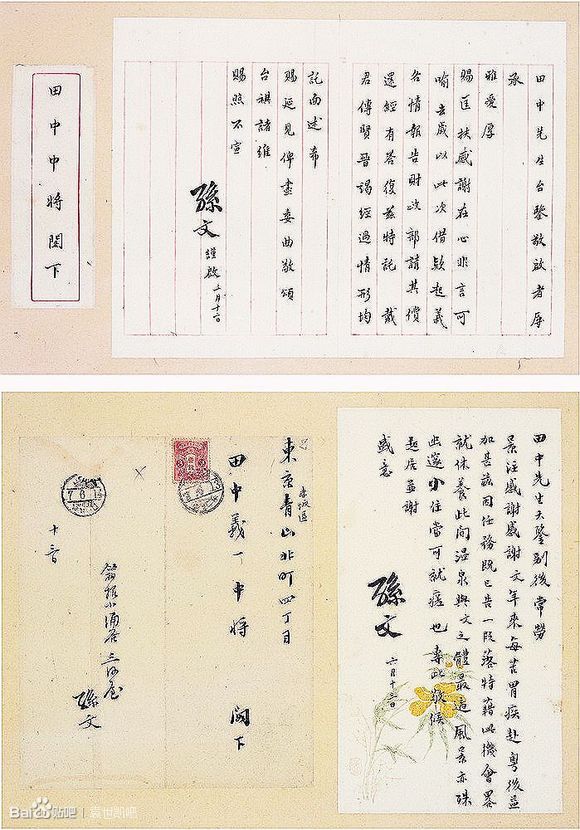 田中先生台鑒敬啟者屢
承
雅愛厚
賜匡扶感謝在心非言可
喻去歲以此次借款起義
各情報告財政部請其償
還經有答復茲特託戴
君傳賢晉謁經過情形均
託面述希
賜延見俾盡委曲敬頌
台祺諸維
賜照不宣
孫文謹啟
田中中將閣下
田中先生大鑒別後常勞
景注感謝感謝文年來每苦胃疾赴粵後益
加甚茲因任務既已告一段落特藉此機會畧
就休養此間溫泉與文之體最適風景亦殊
幽邃少住當可就痊也專此敬候
起居並謝
盛意
孫文
六月十二日
赤坂區
東京青山北町四丁目
田中義一中將 閣下
箱根小涌谷三河屋
孫文
Baidu贴吧 | 袁世凯吧